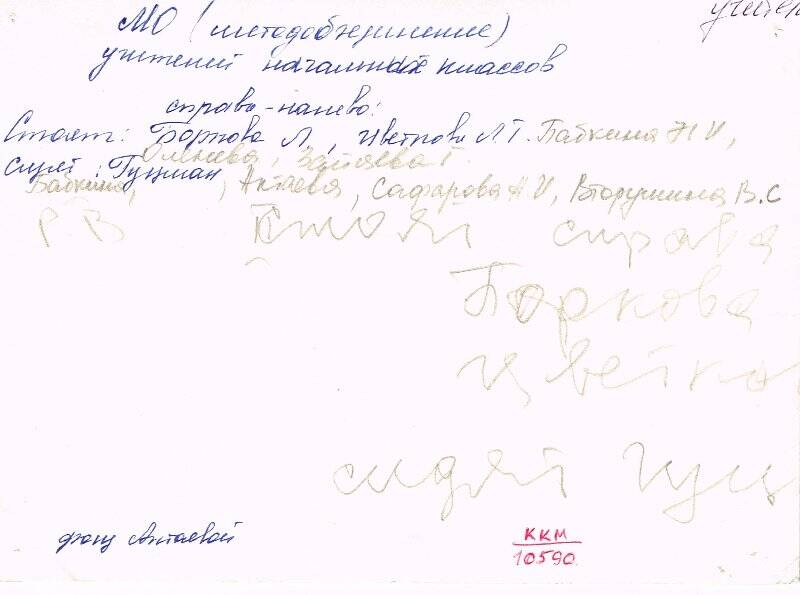 МО (методобъединение)
учителей начальных классов
справа-налево:
Стоят: Боркова Л, Цветкова Л Г. Бабкина Н И,
Оленева, Зайцева Г.
сидят: Гуцман
Бабкина, , Актаева, Сафарова А И, Вторушина В.С
Р В Стоят справа
Боркова
Цветков
сидят Гуц
фонд Актаевой
ККМ
10590